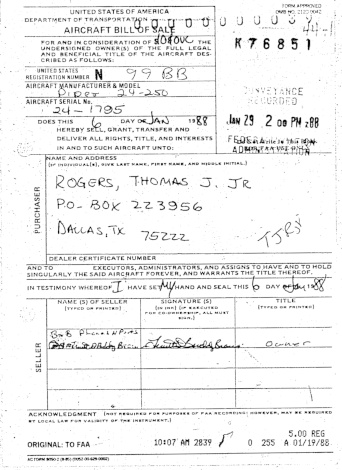 FORM APPROVED
OMB NO. 2120-0042
UNITED STATES OF AMERICA
DEPARTMENT OF TRANSPORTATION
AIRCRAFT BILL OF SALE
FOR AND IN CONSIDERATION OF $ THE
UNDERSIGNED OWNER(S) OF THE FULL LEGAL
AND BENEFICIAL TITLE OF THE AIRCRAFT DES-
CRIBED AS FOLLOWS:
K76851
UNITED STATES
REGISTRATION NUMBER N 99BB
AIRCRAFT MANUFACTURER & MODEL
Piper 24-250
AIRCRAFT SERIAL No.
24-1795
CONVEYANCE
RECORDED
DOES THIS 6 DAY OF JAN 1988
HEREBY SELL, GRANT, TRANSFER AND
DELIVER ALL RIGHTS, TITLE, AND INTERESTS
IN AND TO SUCH AIRCRAFT UNTO:
JAN 29 2 00 PM '88
FEDERAL
ADMINISTRATION
NAME AND ADDRESS
(IF INDIVIDUAL(S), GIVE LAST NAME, FIRST NAME, AND MIDDLE INITIAL.)
PURCHASER
ROGERS, THOMAS J. JR
P.O. BOX 223956
DALLAS, TX 75222
DEALER CERTIFICATE NUMBER
AND TO EXECUTORS, ADMINISTRATORS, AND ASSIGNS TO HAVE AND TO HOLD
SINGULARLY THE SAID AIRCRAFT FOREVER, AND WARRANTS THE TITLE THEREOF.
IN TESTIMONY WHEREOF I HAVE SET MY HAND AND SEAL THIS 6 DAY OF JAN 1988
SELLER
NAME (S) OF SELLER
(TYPED OR PRINTED)
SIGNATURE (S)
(IN INK) (IF EXECUTED
FOR CO-OWNERSHIP, ALL MUST
SIGN.)
TITLE
(TYPED OR PRINTED)
Owner
ACKNOWLEDGMENT (NOT REQUIRED FOR PURPOSES OF FAA RECORDING; HOWEVER, MAY BE REQUIRED
BY LOCAL LAW FOR VALIDITY OF THE INSTRUMENT.)
ORIGINAL: TO FAA
10:07 AM 2839
0 255
5.00 REG
A 01/19/88